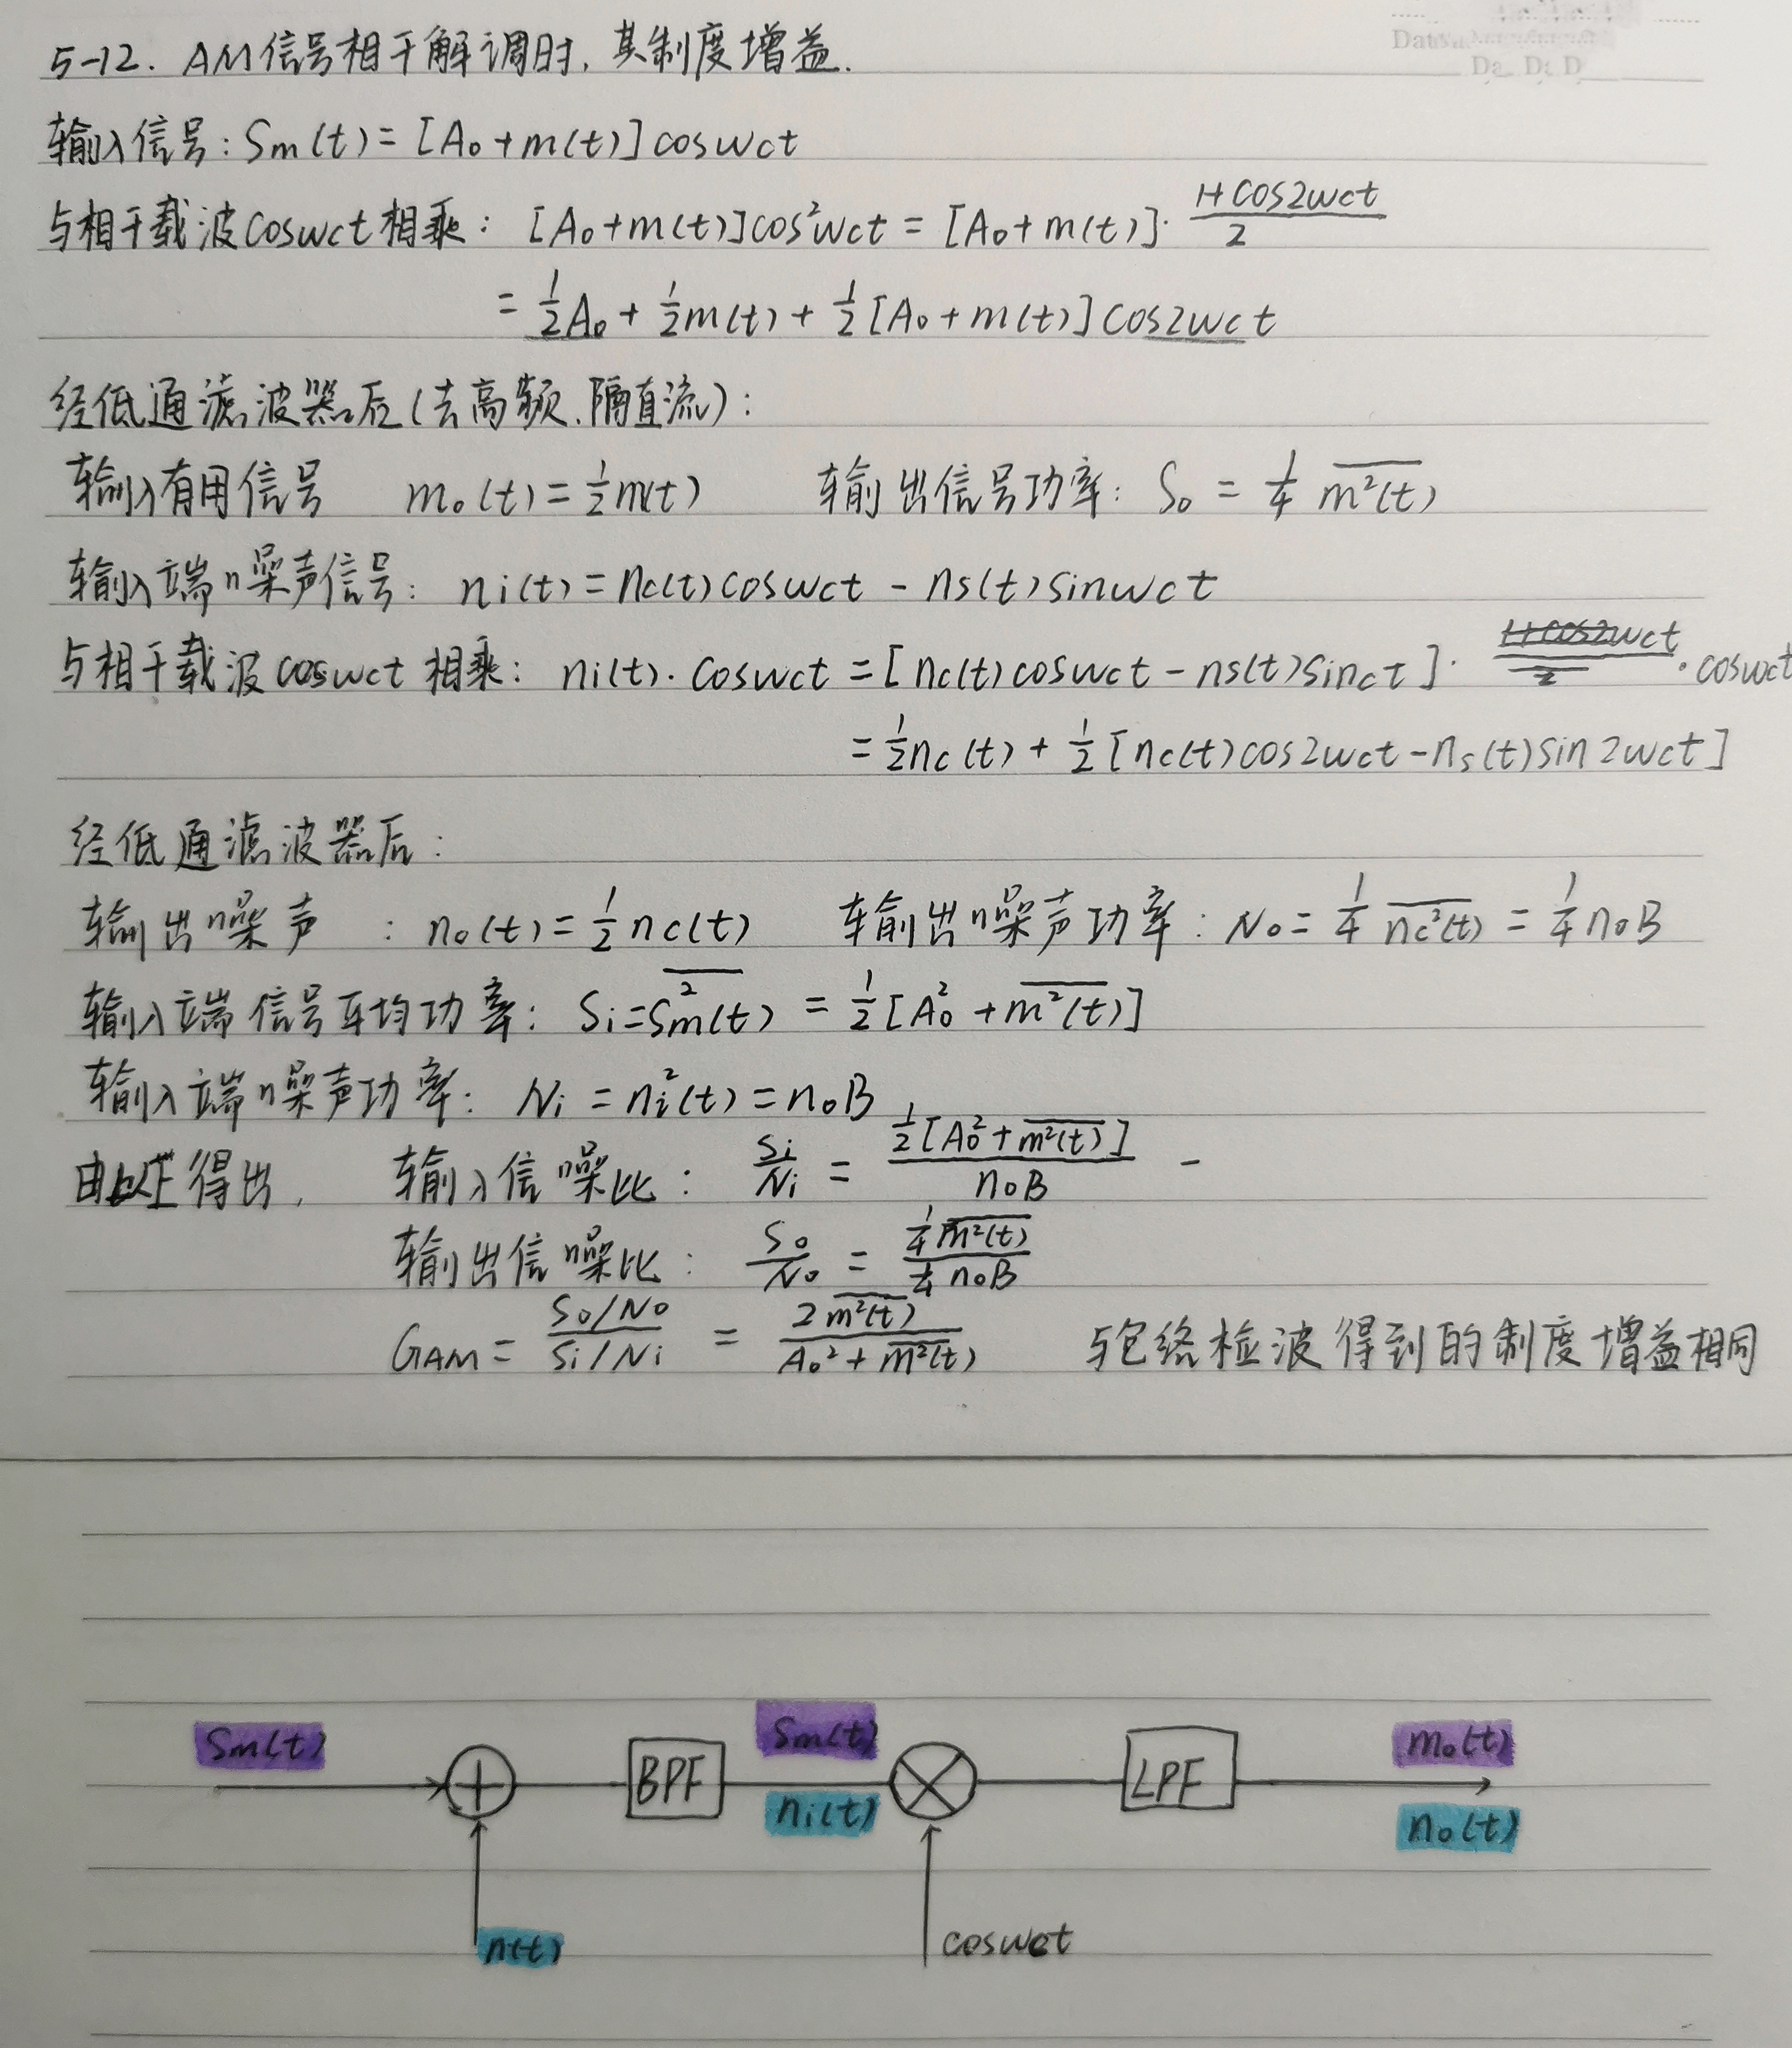 5-12. AM信号相干解调时,其制度增益.
输入信号:Sm(t)=[A₀+m(t)]coswct
与相干载波coswct相乘:[A₀+m(t)]cos²wct=[A₀+m(t)]·(1+cos2wct)/2
=½A₀+½m(t)+½[A₀+m(t)]cos2wct
经低通滤波器后(去高频.隔直流):
输入有用信号 m₀(t)=½m(t) 输出信号功率:S₀=¼ m²(t)
输入端噪声信号:ni(t)=nc(t)coswct-ns(t)sinwct
与相干载波coswct相乘:ni(t)·coswct=[nc(t)coswct-ns(t)sinct]·coswct
=½nc(t)+½[nc(t)cos2wct-ns(t)sin2wct]
经低通滤波器后:
输出噪声:n₀(t)=½nc(t) 输出噪声功率:N₀=¼ nc²(t)=¼n₀B
输入端信号平均功率:Si=Sm²(t)=½[A₀²+m²(t)]
输入端噪声功率:Ni=ni²(t)=n₀B
由以上得出, 输入信噪比:Si/Ni=½[A₀²+m²(t)]/n₀B -
输出信噪比:S₀/N₀=¼m²(t)/¼n₀B
GAM=(S₀/N₀)/(Si/Ni)=2m²(t)/(A₀²+m²(t)) 与包络检波得到的制度增益相同
Sm(t) BPF Sm(t) LPF m₀(t)
ni(t) n₀(t)
n(t) coswct